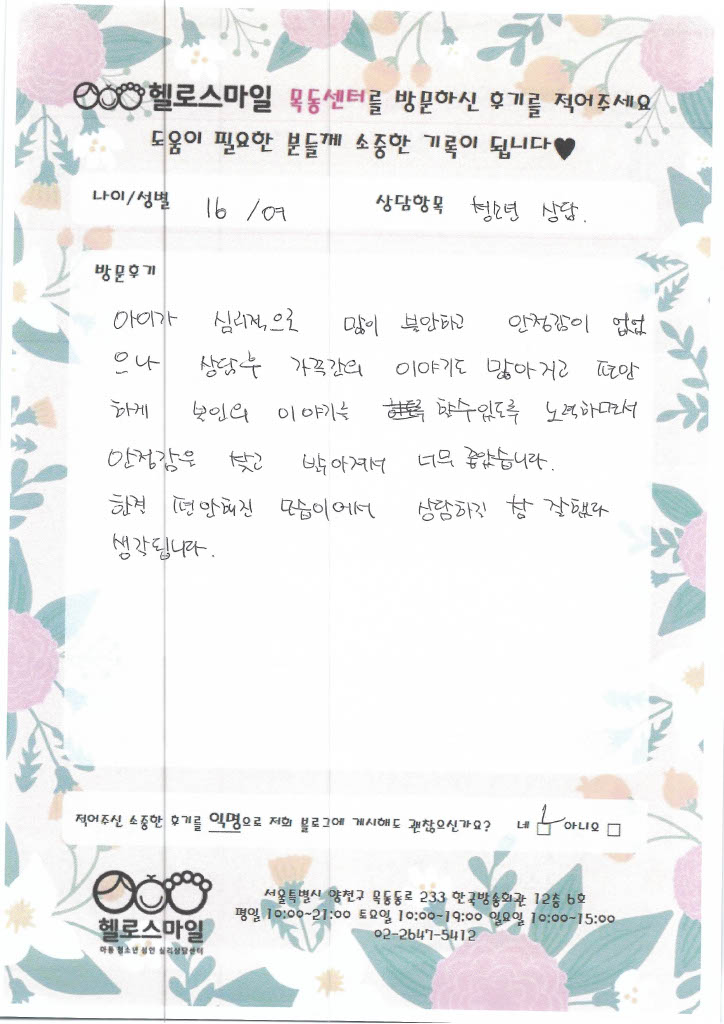 헬로스마일 목동센터를 방문하신 후기를 적어주세요
도움이 필요한 분들께 소중한 기록이 됩니다♥
나이/성별 16 /여 상담항목 청소년 상담.
방문후기
아이가 심리적으로 많이 불안하고 안정감이 없었
으나 상담후 가족간의 이야기도 많아지고 편안
하게 본인의 이야기를 할수있도록 노력하면서
안정감을 찾고 밝아져서 너무 좋았습니다.
한결 편안해진 모습이어서 상담하길 참 잘했다
생각됩니다.
적어주신 소중한 후기를 익명으로 저희 블로그에 게시해도 괜찮으신가요? 네 □ 아니오 □
서울특별시 양천구 목동동로 233 한국방송회관 12층 6호
평일 10:00~21:00 토요일 10:00~19:00 일요일 10:00~15:00
02-2647-5412
헬로스마일
아동 청소년 성인 심리상담센터